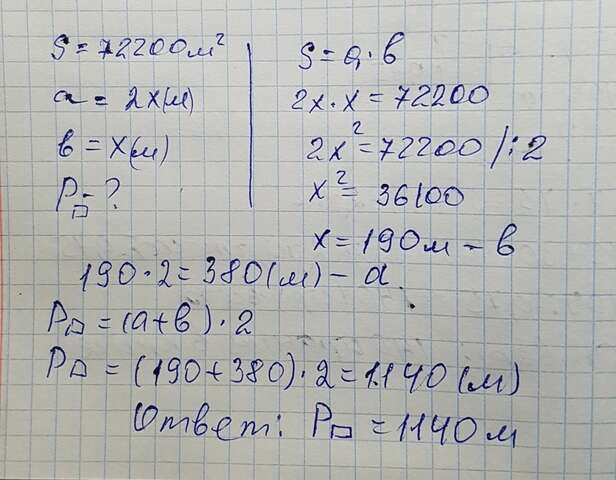 S = 72200 м²
a = 2x(м)
в = x(м)
P▭ = ?
S = a · в
2x · x = 72200
2x² = 72200 /:2
x² = 36100
x = 190 м – в
190 · 2 = 380 (м) – a
P▭ = (a + в) · 2
P▭ = (190 + 380) · 2 = 1140 (м)
Ответ: P▭ = 1140 м